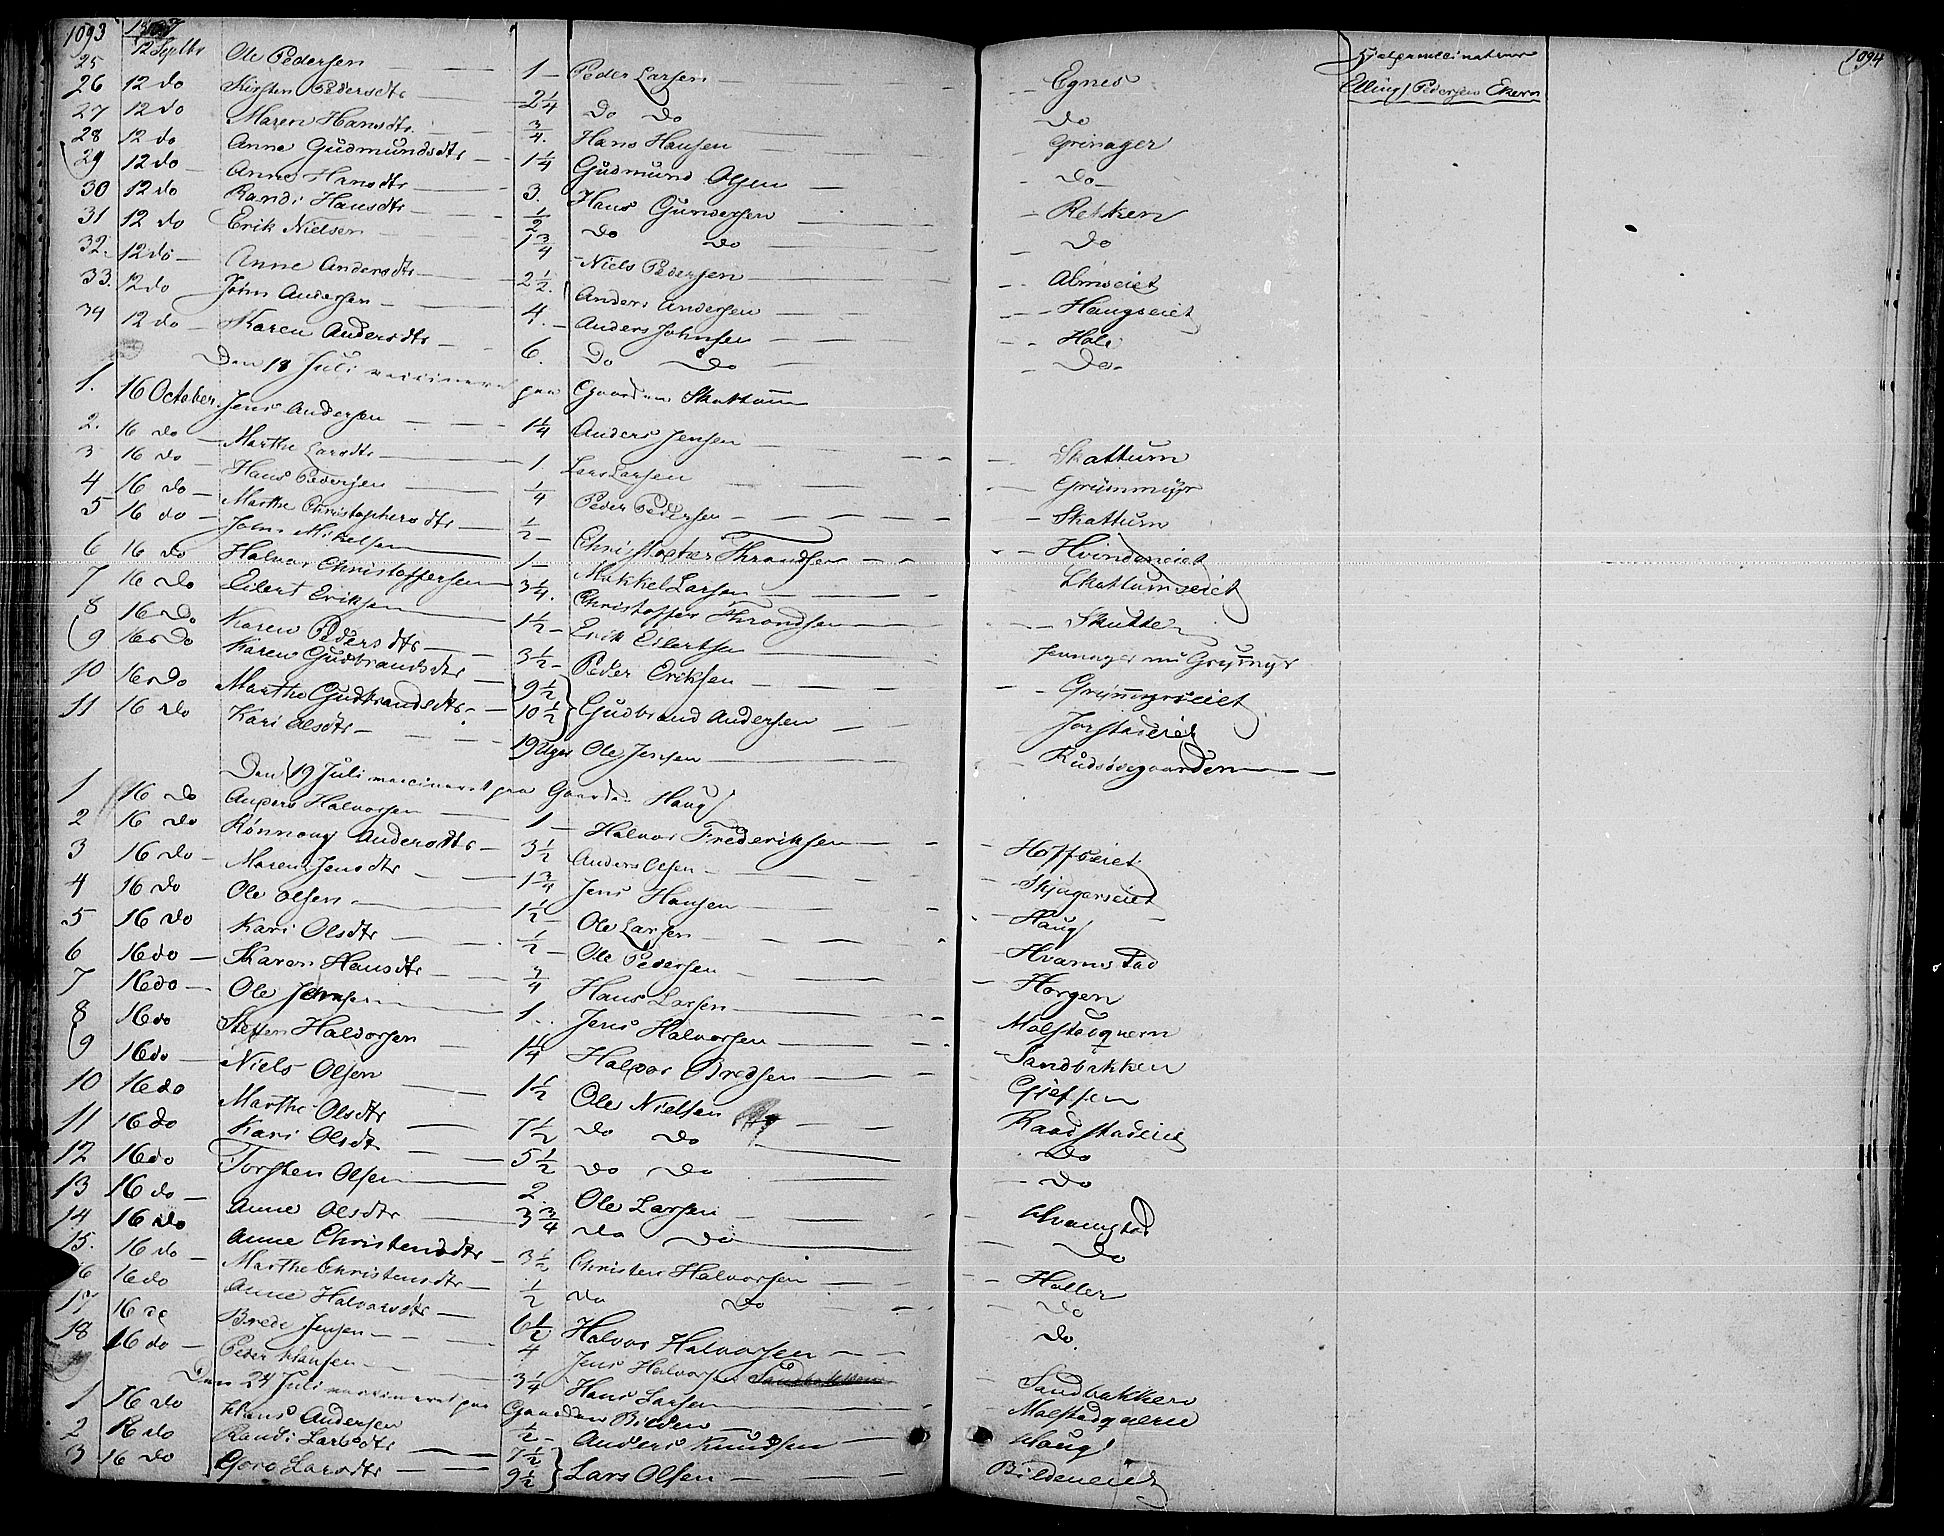 1093 1837 1094
Hjelpevaccinateur
Elling Pedersen Ekern
25 12 Septbr Ole Pedersen 1 Peder Larsen Egnes
26 12 do Kirsten Pedersdtr 2 1/4 Do Do Do
27 12 do Maren Hansdtr 3/4 Hans Hansen Grinager
28 12 do Anne Gudmundsdtr 1 1/4 Gudmund Olsen Do
29 12 do Anne Hansdtr 3 Hans Gundersen Rekken
30 12 do Randi Hansdtr 1/2 Do Do Do
31 12 do Erik Nielsen 1 3/4 Niels Pedersen Almseiet
32 12 do Anne Andersdtr 2 1/2 Anders Andersen Haugseiet
33 12 do John Andersen 4 Anders Johnsen Hole
34 12 do Karen Andersdtr 6 Do Do Do
Den 18 Juli vaccineret paa Gaarden Skattum
1 16 October Jens Andersen 1 1/4 Anders Jensen Skattum
2 16 do Marthe Larsdtr 1 Lars Larsen Grümmyr
3 16 do Hans Pedersen 1/4 Peder Pedersen Skattum
4 16 do Marthe Christophersdtr 1/2 Christopher Throndsen Hvindeneiet
5 16 do John Mikelsen 1 Mikkel Larsen Skattumseiet
6 16 do Halvor Christoffersen 3/4 Christoffer Throndsen
7 16 do Eilert Eriksen 1 1/2 Erik Eilertsen
8 16 do Karen Pedersdtr 3 1/2 Peder Eriksen
9 16 do Karen Gudbrandsdtr 9 1/2
10 16 do Marthe Gudbrandsdtr 10 1/2 Gudbrand Andersen
11 16 do Kari Olsdtr 19 Uger Ole Jensen
Den 19 Juli vaccineret paa Gaarden Haug
1 16 do Anders Halvorsen 1 Halvor Frederiksen Hoffseiet
2 16 do Rönnaug Andersdtr 3 1/2 Anders Olsen Skjagerseiet
3 16 do Maren Jensdtr 1 3/4 Jens Hansen Haug
4 16 do Ole Olsen 1 1/2 Ole Larsen Hvamstad
5 16 do Kari Olsdtr 1/2 Ole Pedersen Horgen
6 16 do Karen Hansdtr 3/4 Hans Larsen Malstadqvern
7 16 do Ole Jensen 1 Jens Halvorsen Sandbakken
8 16 do Steffen Halvorsen 1 1/4 Halvor Bredsen Gjefsen
9 16 do Niels Olsen 1 1/2 Ole Nielsen Raadstadeiet
10 16 do Marthe Olsdtr 7 1/2 Do Do Do
11 16 do Kari Olsdtr 5 1/2 Do Do Do
12 16 do Torsten Olsen 2 Ole Larsen Hvamstad
13 16 do Anne Olsdtr 3 3/4 Do Do Do
14 16 do Anne Christensdtr 3 1/2 Christen Halvorsen Haller
15 16 do Marthe Christensdtr 1/2 Do Do Do
16 16 do Anne Halvorsdtr 6 1/2 Halvor Halvorsen Do
17 16 do Brede Jensen 4 Jens Halvorsen Sandbakken Sandbakken
18 16 do Peder Hansen 3/4 Hans Larsen Malstadqvern
Den 24 Juli vaccineret paa Gaarden Bilden
1 16 do Hans Andersen 1/2 Anders Knudsen Haug
2 16 do Randi Larsdtr 7 1/2
3 16 do Goro Larsdtr 9 1/2 Lars Olsen Bildeneiet